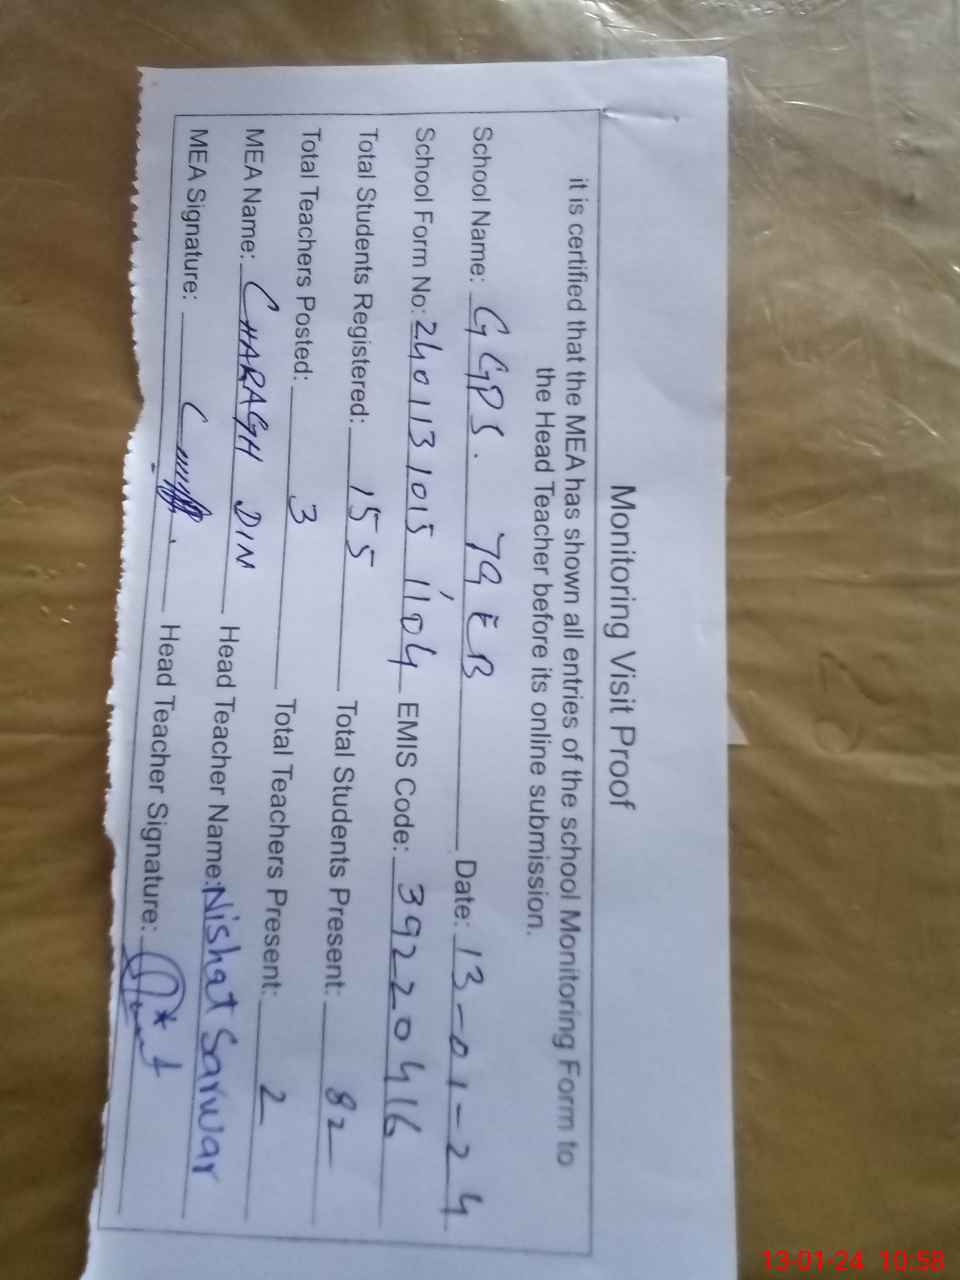 Monitoring Visit Proof
it is certified that the MEA has shown all entries of the school Monitoring Form to
the Head Teacher before its online submission.
School Name: GGPS. 79 EB Date: 13-01-24
School Form No: 2401131015 1104 EMIS Code: 39220416
Total Students Registered: 155 Total Students Present: 82
Total Teachers Posted: 3 Total Teachers Present: 2
MEA Name: CHARAGH DIN Head Teacher Name: Nishat Sarwar
MEA Signature: Head Teacher Signature:
13-01-24 10:58